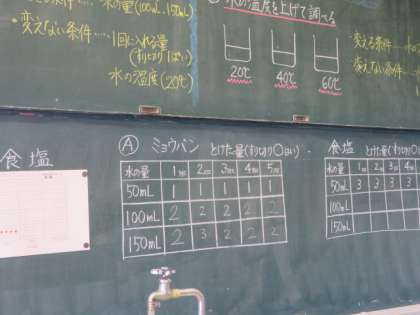 水の量(100mL, 150mL)
・変えない条件……1回に入れる量
(すりきり1ぱい)
水の温度(20℃)
水の温度を上げて調べる
20℃ 40℃ 60℃
・変える条件…
変えない条件…
食塩
Ⓐ ミョウバン とけた量(すりきり〇はい)
水の量 1班 2班 3班 4班 5班
50mL 1 1 1 1 1
100mL 2 2 2 2 2
150mL 2 3 2 2 2
食塩 とけた量(すりきり〇
水の量 1班 2班 3班 4班
50mL 3 3 3 3
100mL
150mL